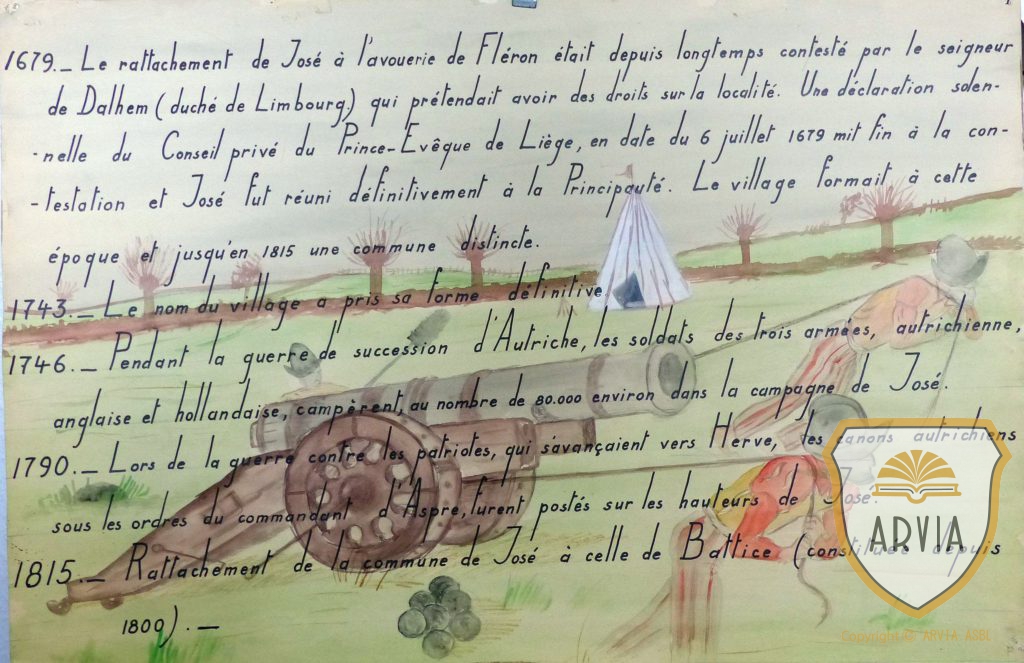 1679._ Le rattachement de José à l'avouerie de Fléron était depuis longtemps contesté par le seigneur
de Dalhem (duché de Limbourg) qui prétendait avoir des droits sur la localité. Une déclaration solen-
-nelle du Conseil privé du Prince-Evêque de Liège, en date du 6 juillet 1679 mit fin à la con-
-testation et José fut réuni définitivement à la Principauté. Le village formait à cette
époque et jusqu'en 1815 une commune distincte.
1743._ Le nom du village a pris sa forme définitive.
1746._ Pendant la guerre de succession d'Autriche, les soldats des trois armées, autrichienne,
anglaise et hollandaise, campèrent, au nombre de 80.000 environ dans la campagne de José.
1790._ Lors de la guerre contre les patriotes, qui s'avançaient vers Herve, les canons autrichiens
sous les ordres du commandant d'Aspre, furent postés sur les hauteurs de José.
1815._ Rattachement de la commune de José à celle de Battice (constituée depuis
1800)._
ARVIA
Copyright © ARVIA ASBL